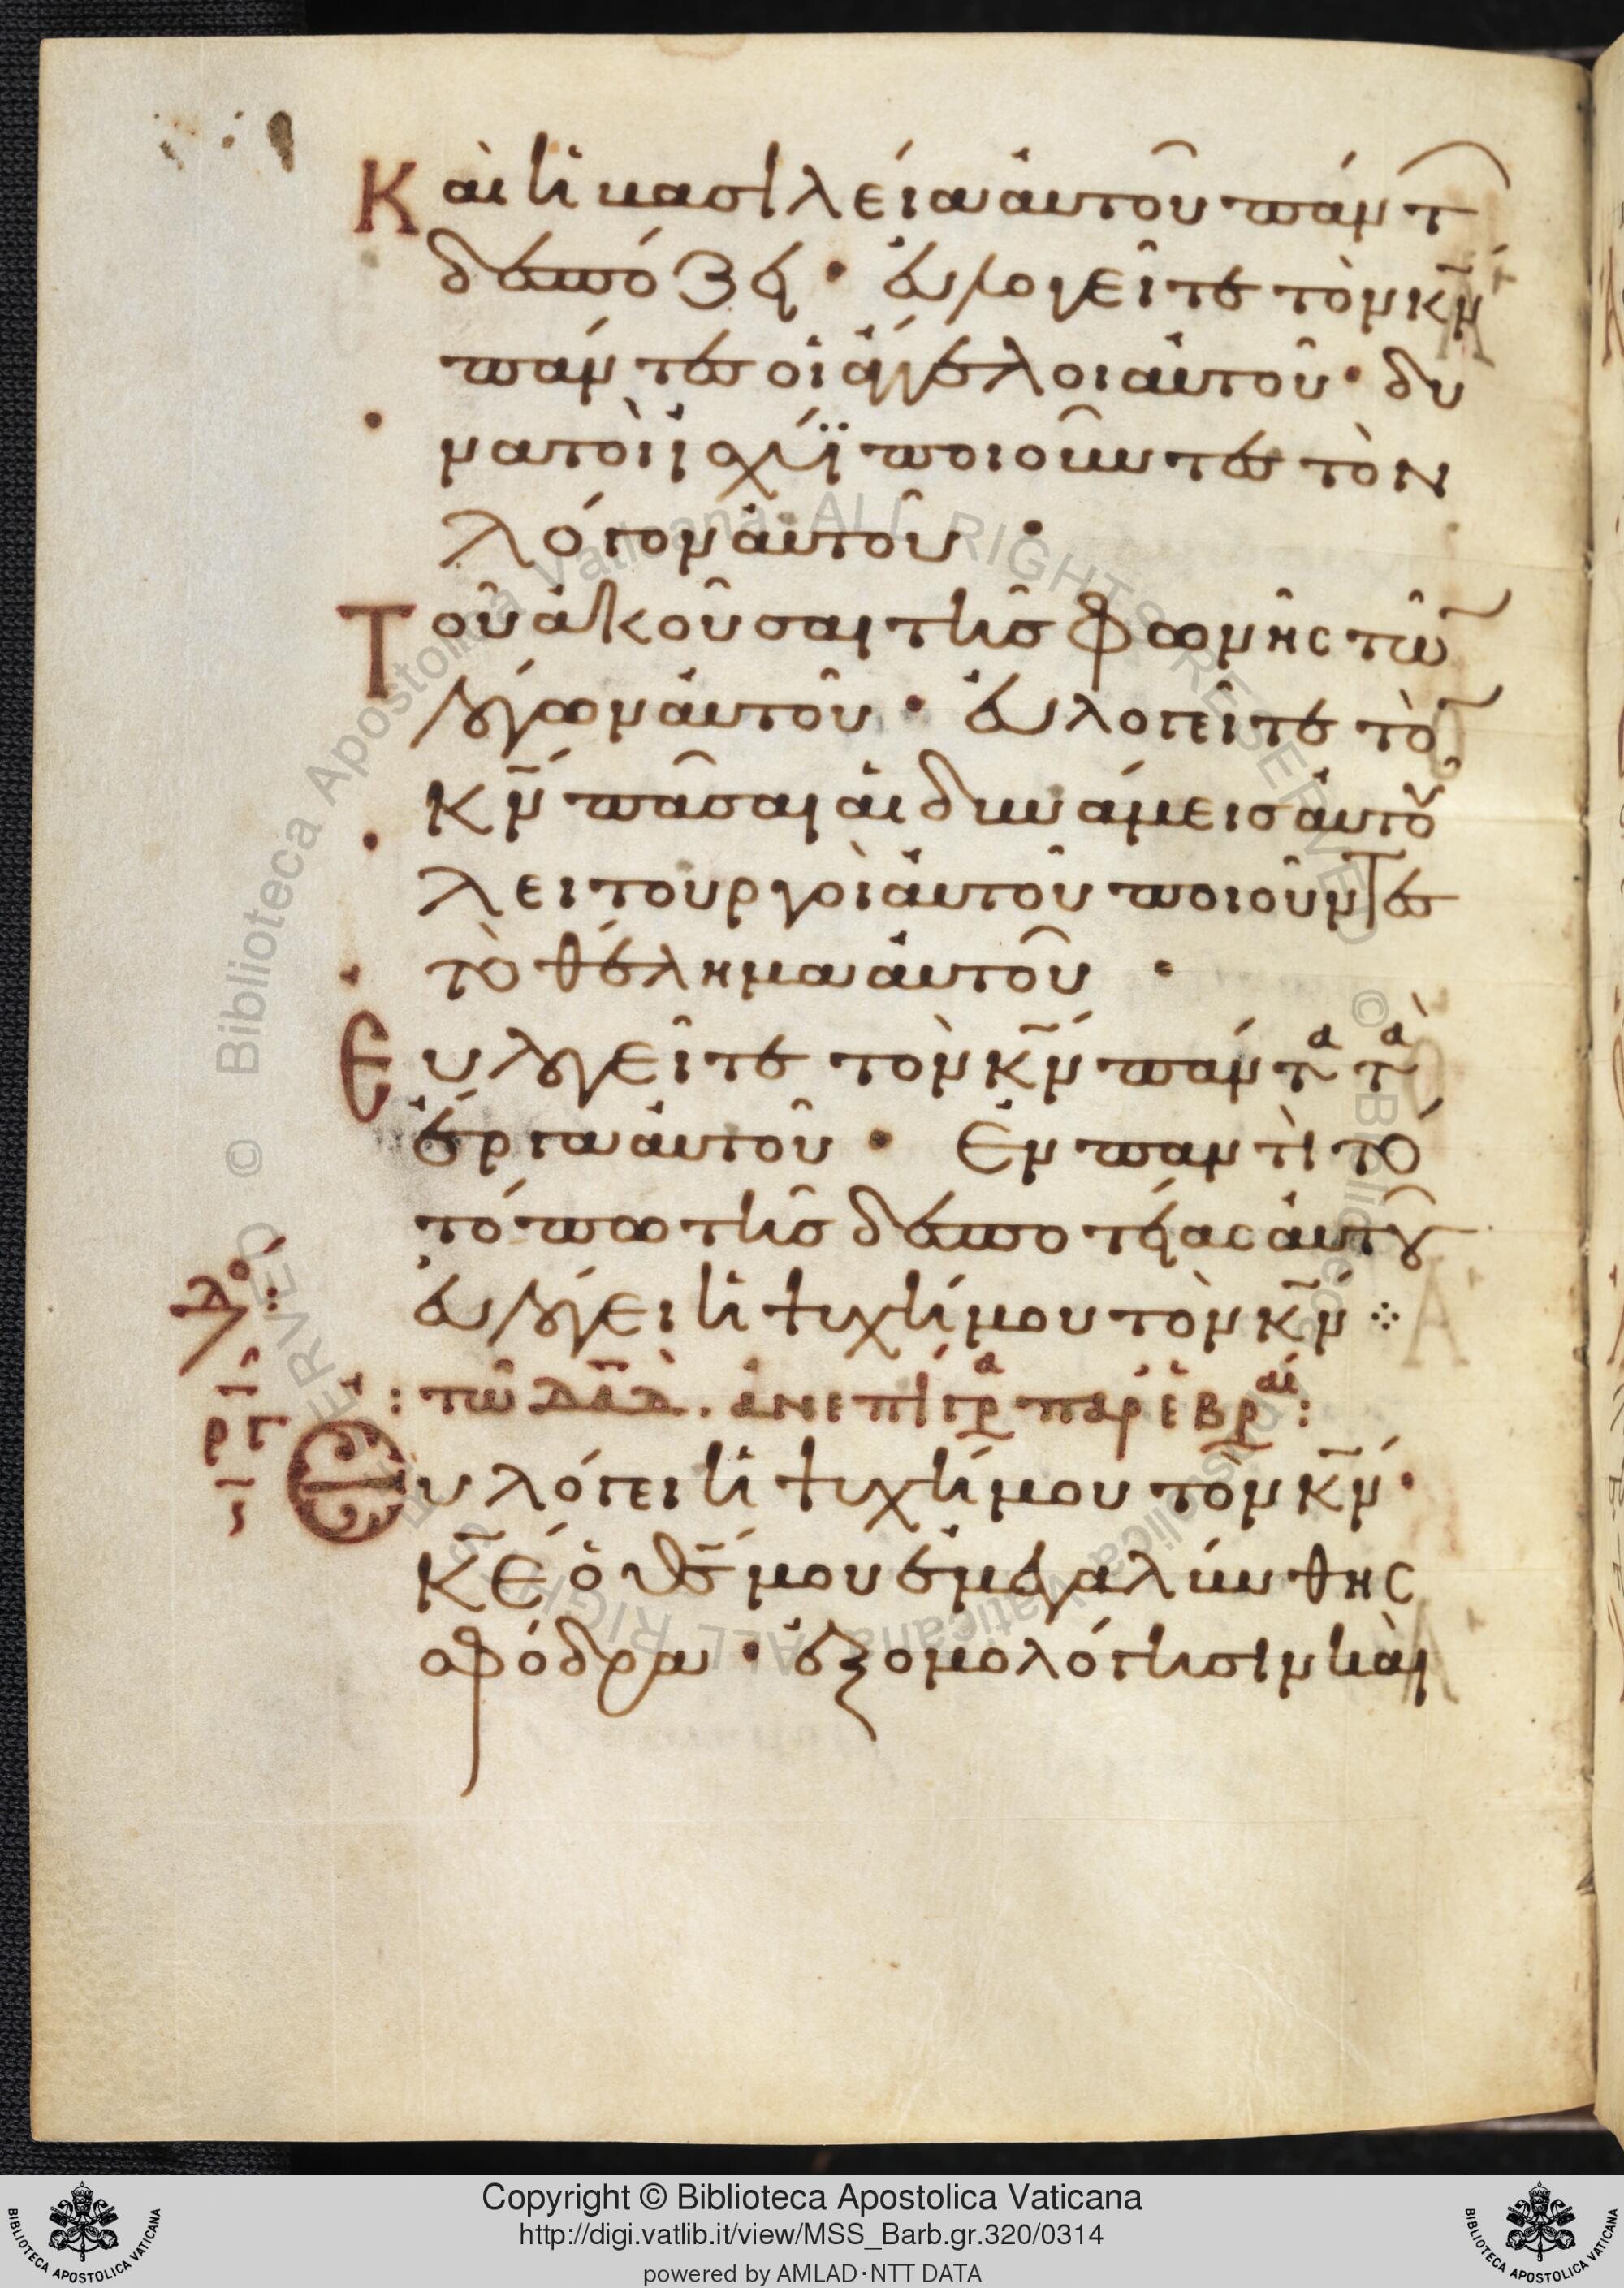 Καὶ ἡ βασιλεία αὐτοῦ πάντ
δεσπόζει· εὐλογεῖτε τὸν κ̅ν̅
πάντες οἱ ἄγγελοι αὐτοῦ· δυ
νατοὶ ἰσχύϊ ποιοῦντες τὸν
λόγον αὐτοῦ·
Τοῦ ἀκοῦσαι τῆς φωνῆς τῶ
λόγων αὐτοῦ· εὐλογεῖτε τὸ
κ̅ν̅ πᾶσαι αἱ δυνάμεις αὐτοῦ
λειτουργοὶ αὐτοῦ ποιοῦντες
τὸ θέλημα αὐτοῦ·
Εὐλογεῖτε τὸν κ̅ν̅ πάντα τὰ
ἔργα αὐτοῦ· Ἐν παντὶ τό
τόπω τῆς δεσποτείας αὐτοῦ
εὐλόγει ἡ ψυχή μου τὸν κ̅ν̅ ⁘
: τῶ δ̅α̅δ̅. ἀνεπίγρα παρ ἑβραί :
ρ̅γ̅
Εὐλόγει ἡ ψυχή μου τὸν κ̅ν̅·
κ̅ε̅ ὁ θ̅ς̅ μου ἐμεγαλύνθης
σφόδρα· ἐξομολόγησιν καὶ
Copyright © Biblioteca Apostolica Vaticana
http://digi.vatlib.it/view/MSS_Barb.gr.320/0314
powered by AMLAD·NTT DATA
BIBLIOTECA APOSTOLICA VATICANA
BIBLIOTECA APOSTOLICA VATICANA